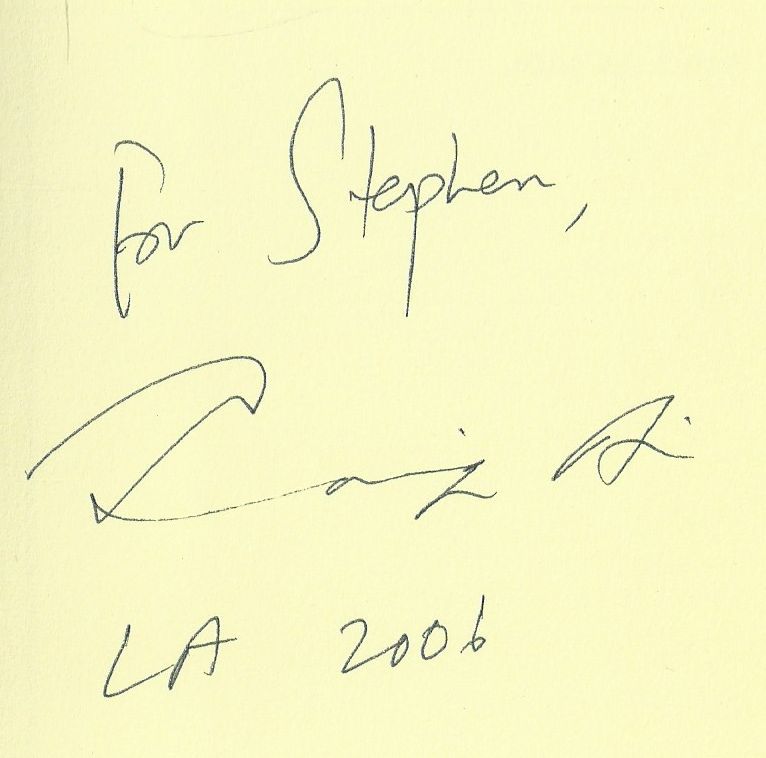 For Stephen,
LA 2006